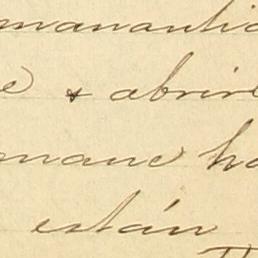 manantia
e & abrire
mane ha
están